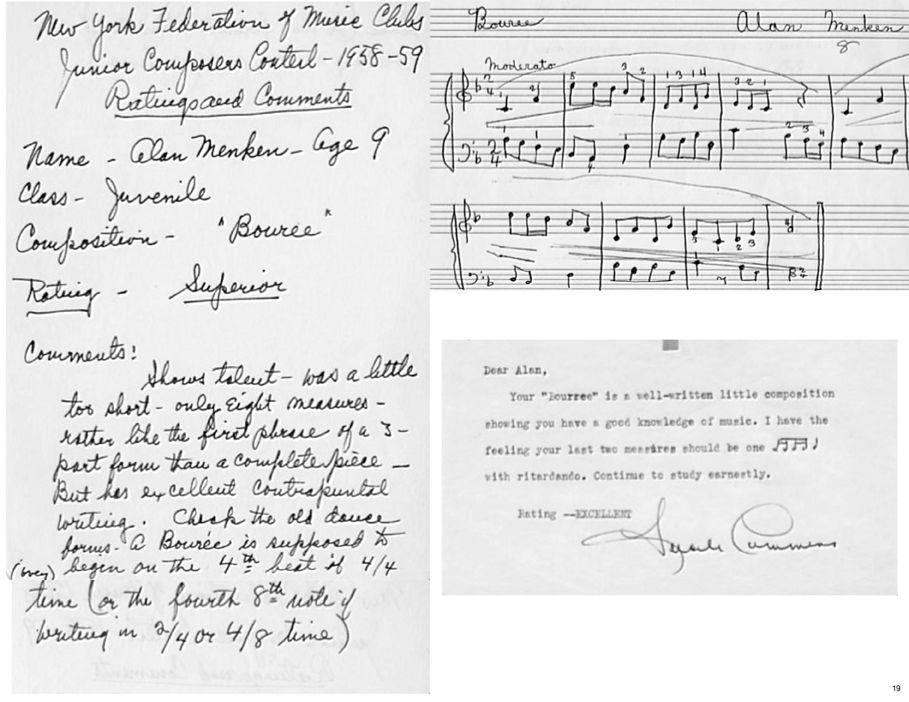 New York Federation of Music Clubs
Junior Composers Contest - 1958-59
Ratings and Comments
Name - Alan Menken - Age 9
Class - Juvenile
Composition - "Bourée"
Rating - Superior
Comments:
Shows talent - was a little
too short - only eight measures -
rather like the first phrase of a 3-
part form than a complete piece -
But has excellent contrapuntal
writing. Check the old dance
forms - A Bourée is supposed to
begin on the 4th beat if 4/4
time (or the fourth 8th note if
writing in 2/4 or 4/8 time)
Bouree
Alan Menken
8
Moderato
5 3 2 1 3 1 4 3 2 1
2 3 4
3 1 2 3
Dear Alan,
Your "Bourree" is a well-written little composition
showing you have a good knowledge of music. I have the
feeling your last two measures should be one
with ritardando. Continue to study earnestly.
Rating --EXCELLENT
19